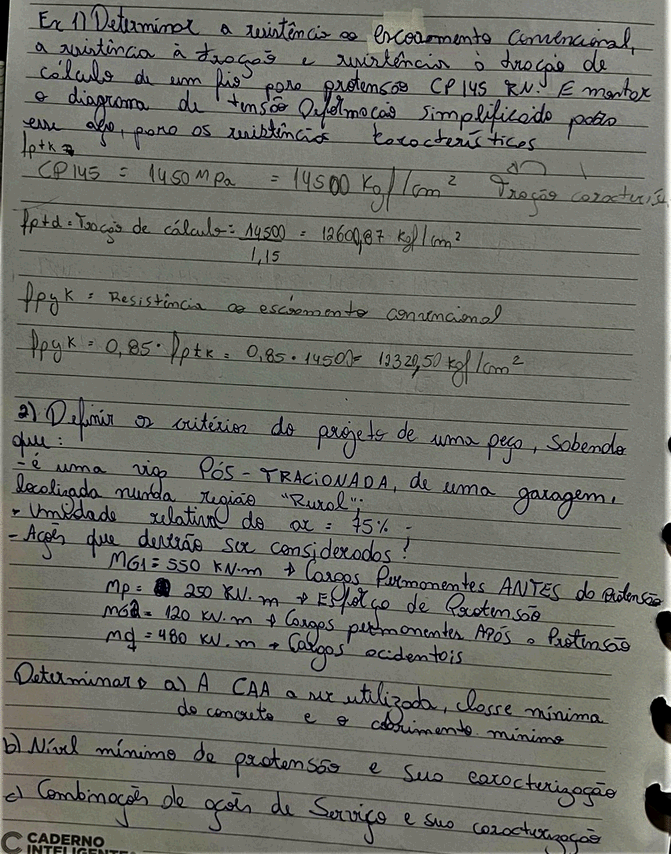 Ex 1) Determinar a resistência ao escoamento convencional,
a resistência à tração e resistência à tração de
cálculo de um fio para protensão CP 145 RN. E montar
o diagrama de tensão Deformação simplificado para
esse aço, para as resistências características
fptk =
CP145 = 1450 MPa = 14500 Kgf/cm² Tração caracterís.
fptd = Tração de cálculo = 14500 / 1,15 = 12608,87 kgf/cm²
fpyk = Resistência ao escoamento convencional
fpyk = 0,85 · fptk = 0,85 · 14500 = 12320,50 kgf/cm²
2) Definir os critérios do projeto de uma peça, sabendo
que:
- é uma viga PÓS-TRACIONADA, de uma garagem,
localizada numa região "Rural";
- Umidade relativa do ar = 75% -
- Ações que deverão ser consideradas:
MG1 = 550 KN.m → Cargas Permanentes ANTES da Protensão
Mp = 250 KN.m → Esforço de Protensão
MG2 = 120 KN.m → Cargas permanentes APÓS a Protensão
Mq = 480 KN.m → Cargas acidentais
Determinar → a) A CAA a ser utilizada, classe mínima
do concreto e o cobrimento mínimo
b) Nível mínimo de protensão e sua caracterização
c) Combinações de ações de Serviço e sua caracterização
CADERNO
INTELIGENTE